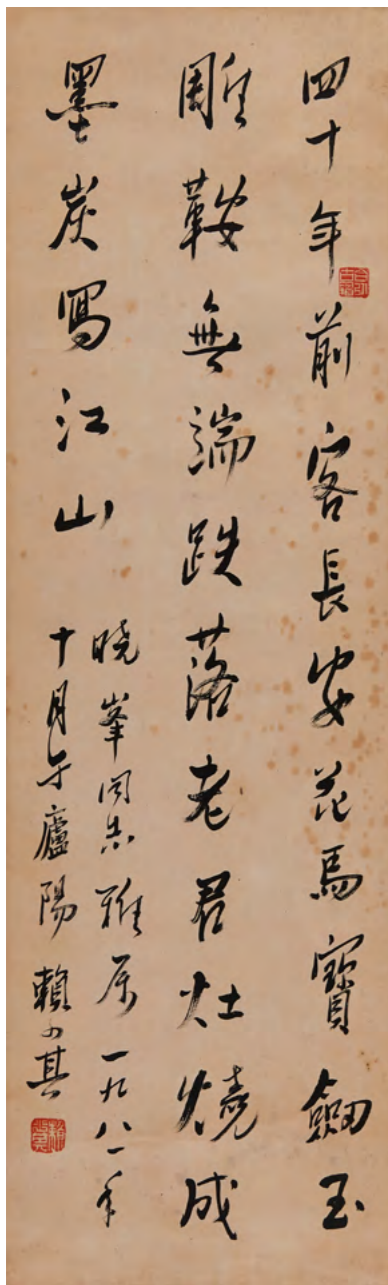 四十年前客長安花馬寶劍玉
雕鞍無端跌落老君灶燒成
墨炭寫江山
曉峯同志雅屬一九八一年
十月于廬陽賴少其